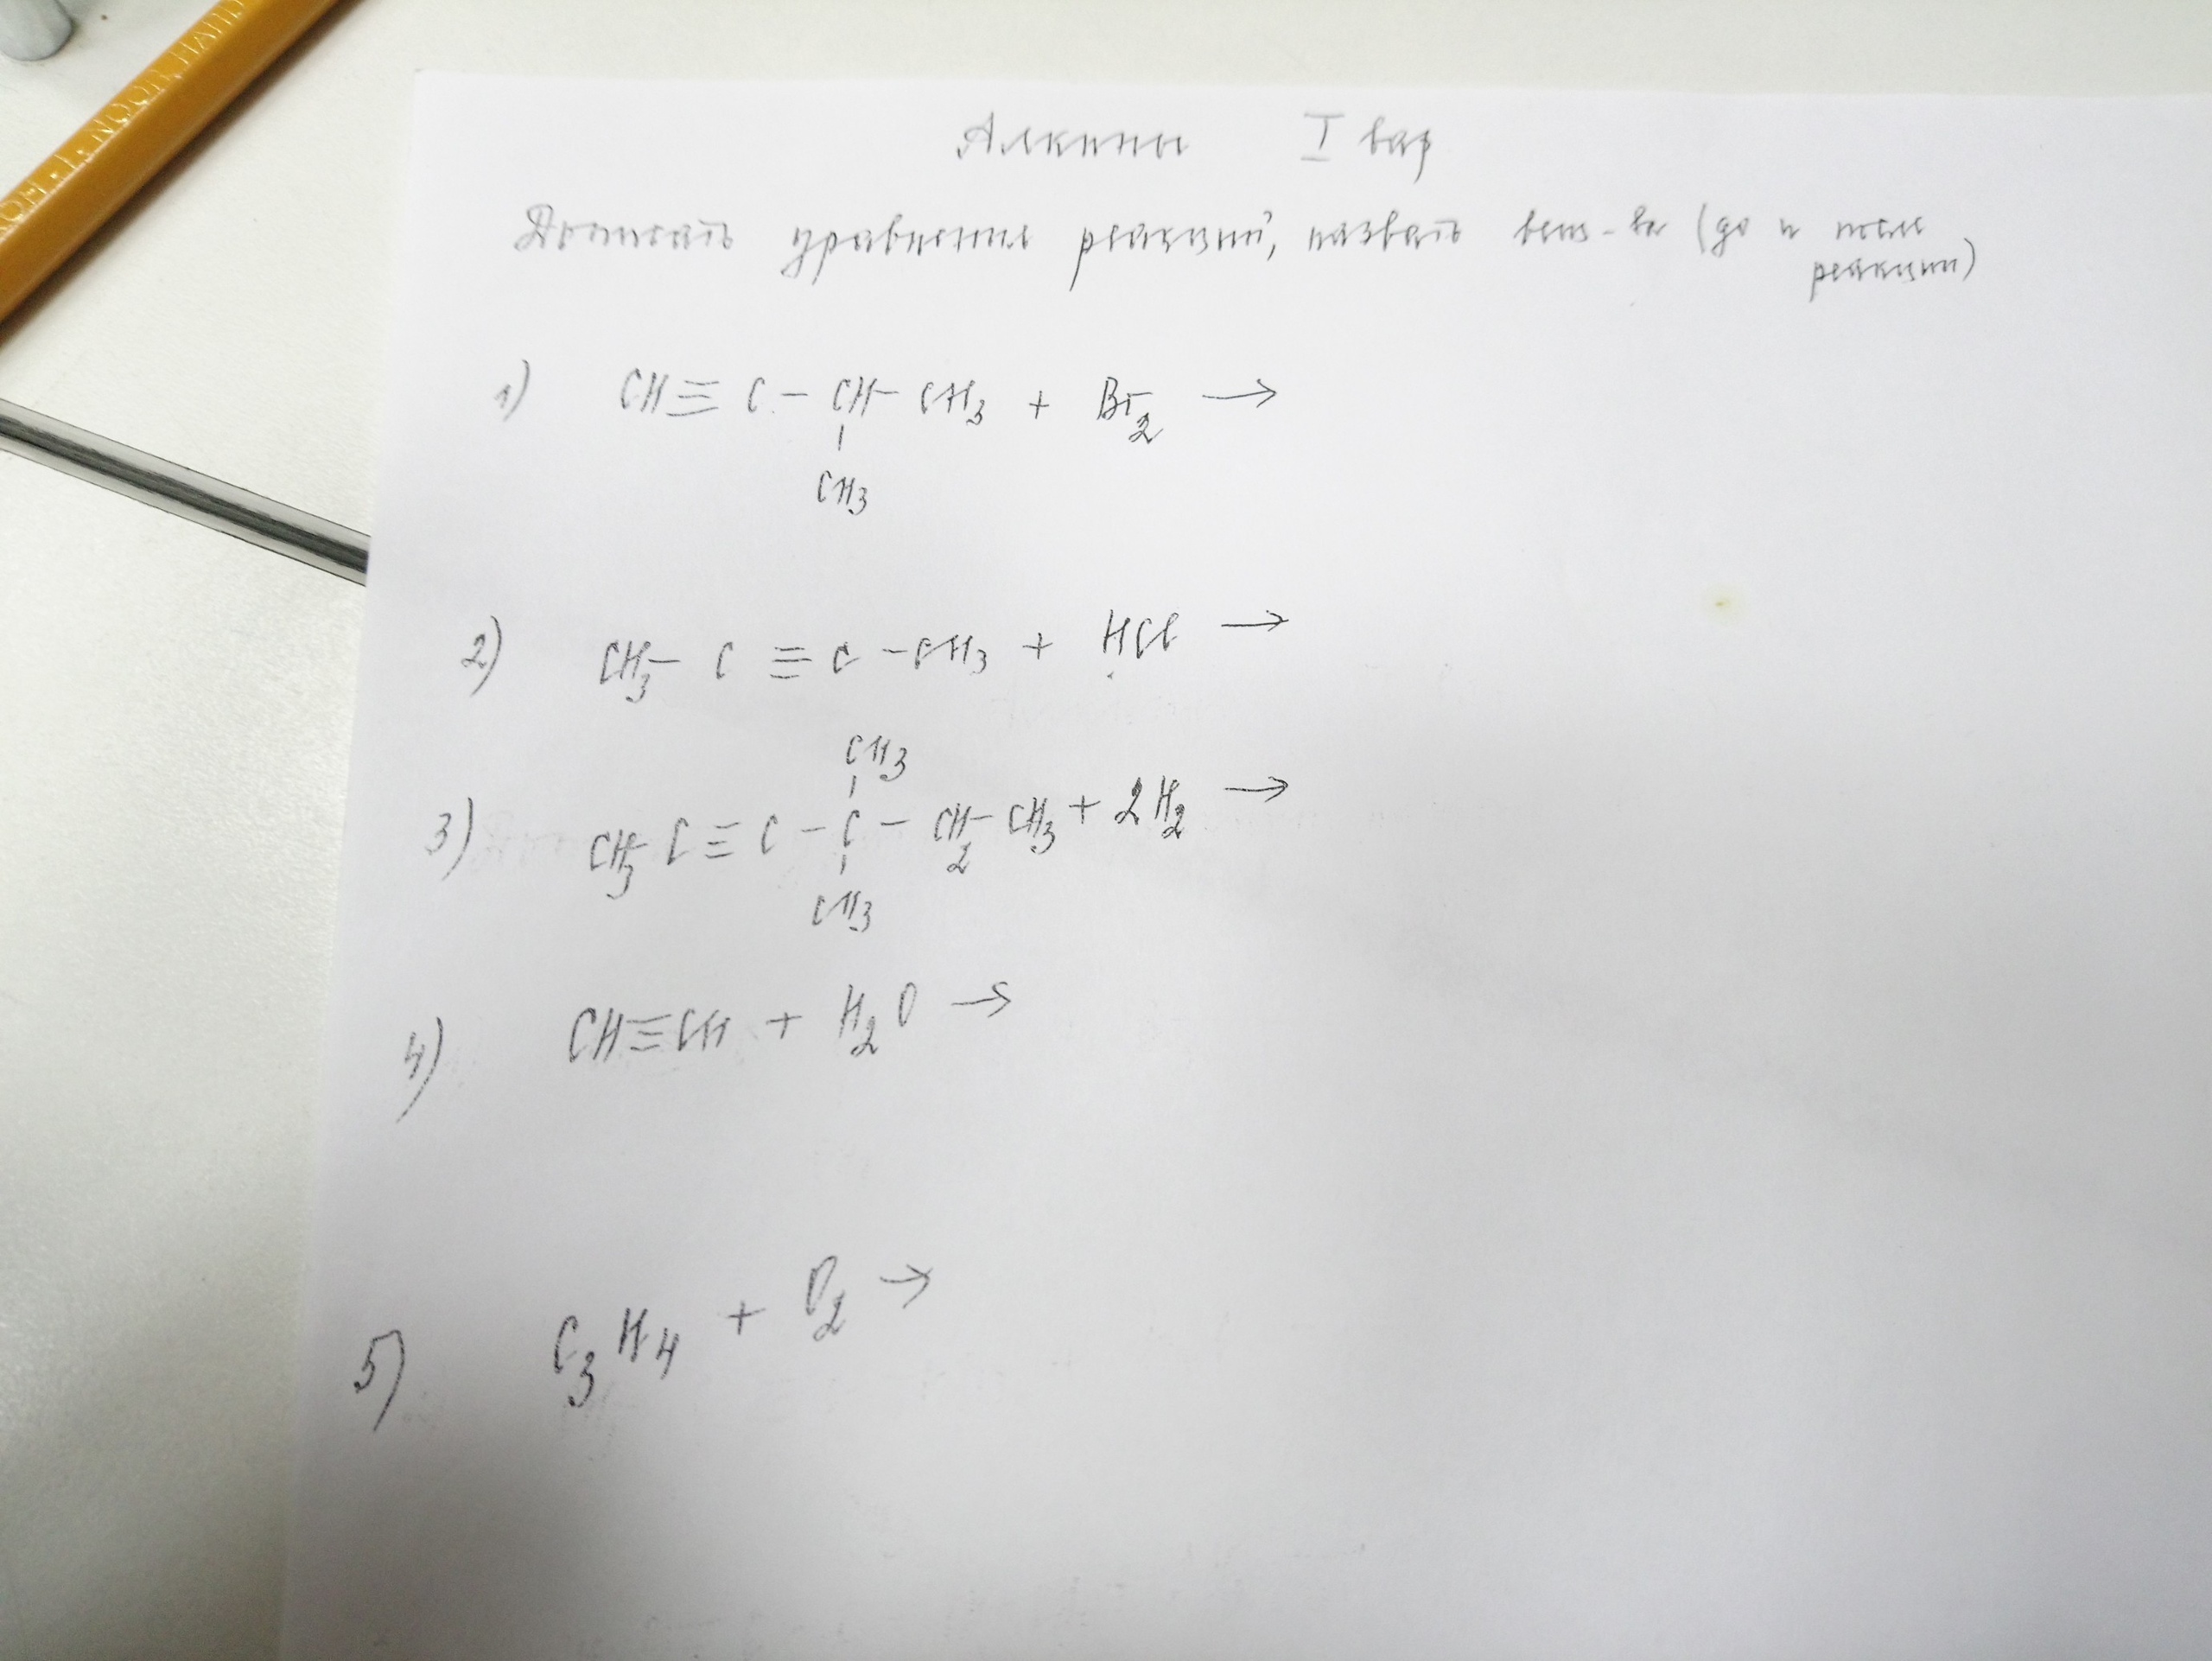 KOH-I-NOOR HARD
Алкины I вар
Дописать уравнения реакций, назвать вещ-ва (до и после
реакции)
1) CH≡C-CH-CH3 + Br2 →
CH3
2) CH3-C≡C-CH3 + HCl →
CH3
3) CH3-C≡C-C-CH2-CH3 + 2H2 →
CH3
4) CH≡CH + H2O →
5) C3H4 + O2 →